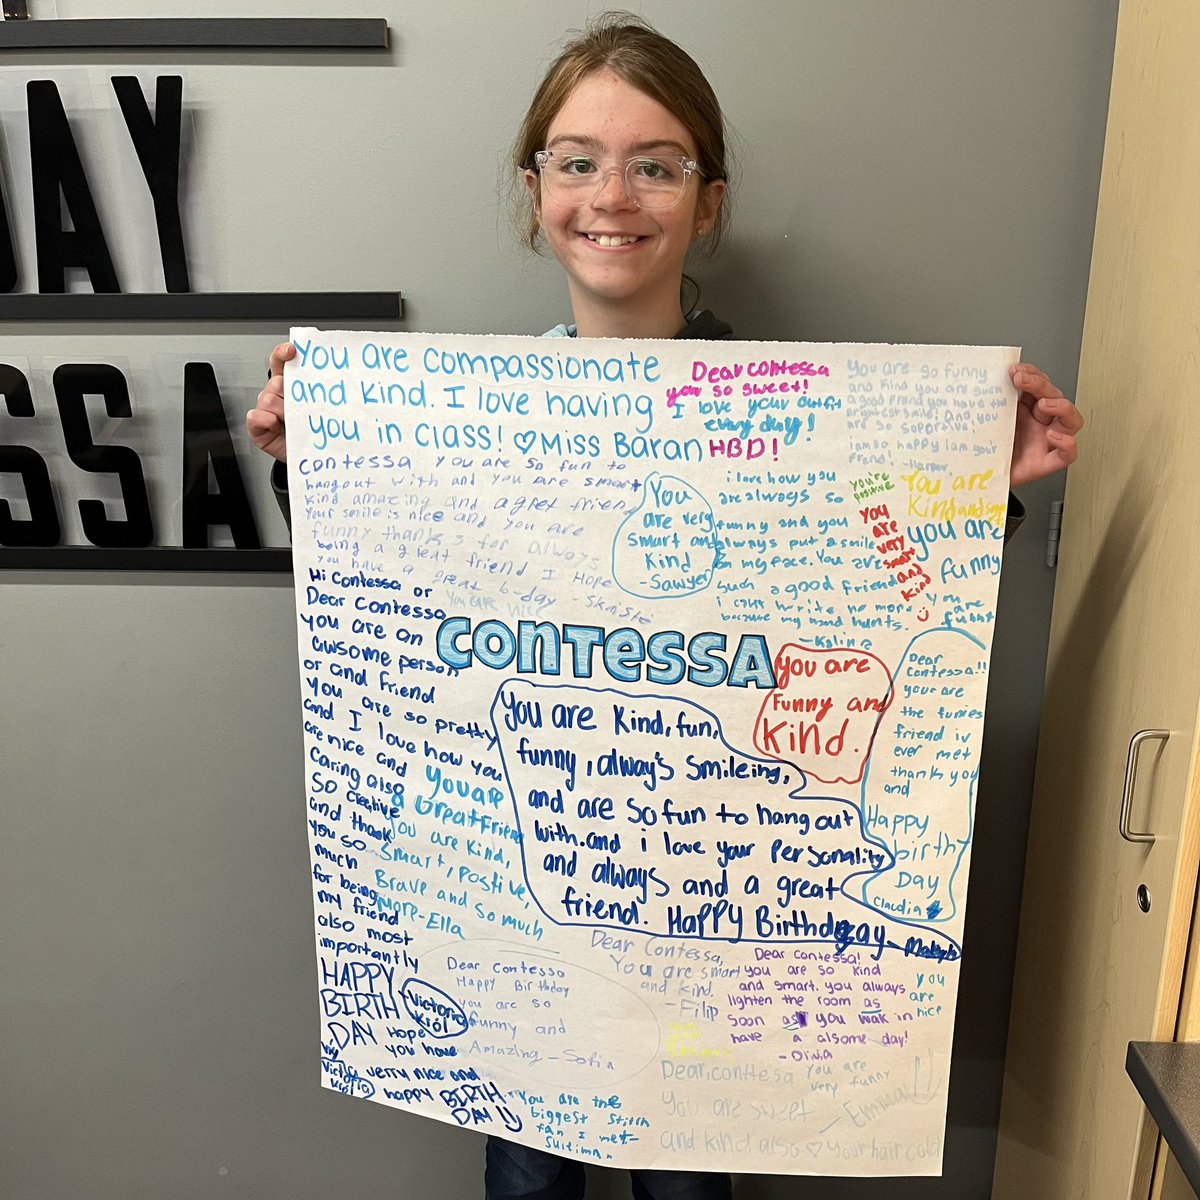 DAY
SSA
You are compassionate
and kind. I love having
you in class! ♡Miss Baran
Dear contessa
you so sweet!
I love your outfit
every day!
HBD!
You are so funny
and kind you are such
a good friend you have the
brightest smile! and you
are so saporsive!
i am so happy I am your
friend!
-Harper
contessa you are so fun to
hangout with and you are smart
kind amazing and a gret friend
your smile is nice and you are
funny thanks for always
being a great friend I Hope
you have a great b-day -
You are nice
You
are very
smart and
Kind
-Sawyer
i love how you
are always so
funny and you
always put a smile
on my face. You are
such a good friend
i cant write no more
because my hand hurts.
-Kalina
you're
positive
You
are
very
smart
and
kind
You are
Kind and smart
you are
funny
You
are
funny
Hi Contessa or
Dear Contessa
you are an
awsome person
or and friend
You are so pretty
and I love how you
are nice and
caring also
so creative
and thank
you so
much
for being
my friend
also most
importantly
HAPPY
BIRTH
DAY Hope
you have
Victoria
Król
verry nice and
happy BIRTH
DAY
Victoria
Król
CONTESSA
you are
Funny and
kind.
Dear
contessa!!
your are
the funies
friend iv
ever met
thank you
and
Happy
birth
Day
Claudia
You are kind, fun,
funny, always smileing,
and are so fun to hang out
with. and i love your Personality
and always and a great
friend. Happy Birthday -
You are
a Great Friend
You are kind,
Smart, Postive,
Brave and so much
more-Ella
Dear contessa
Happy Birthday
you are so
funny and
Amazing - Sofia
Dear Contessa,
You are smart
and kind.
- Filip
Dear contessa!
you are so kind
and smart. you always
lighten the room as
soon as you walk in
have a alsome day!
- Olivia
you
are
nice
You are the
biggest stitch
fan I met-
Suliman
Dear, conttesa
You are sweet
and kind also ♡ your hair color
You are
very funny
- Emma